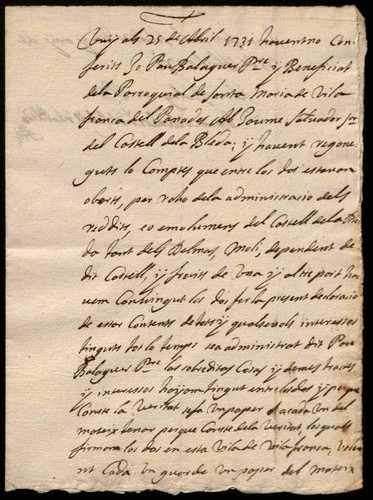 Vuy als 25 de Abril 1731 haventno Con
ferits Jo Pau Balaguer Pre. y Beneficiat
dela Parroquial de Santa Maria de Vila
franca del Panades Ab Jaume Salvador
del Castell dela Bleda; y havent regone
guts lo Comptes que entre los dos estavan
oberts, per raho dela administracio dels
reddits, eo emolumens del Castell dela Ble
da tant dels Delmas, Moli, dependent de
dit Castell, y fruits de una y altre part ha
vem Convingut los dos fer la present declaracio
de estar Contents de tots y qualsevols interessos
tinguts tot lo temps sea administrat dit Pau
Balaguer Pre. las sobreditas Cosas y demes tractes
y interessos hajam tingut entre los dos y perque
Conste la veritat sefa un paper a cada un del
mateix tenor perque Conste dela veritat los quals
firmam los dos en esta Vila de Vilafranca,
nt Cada un guarde un paper del mateix